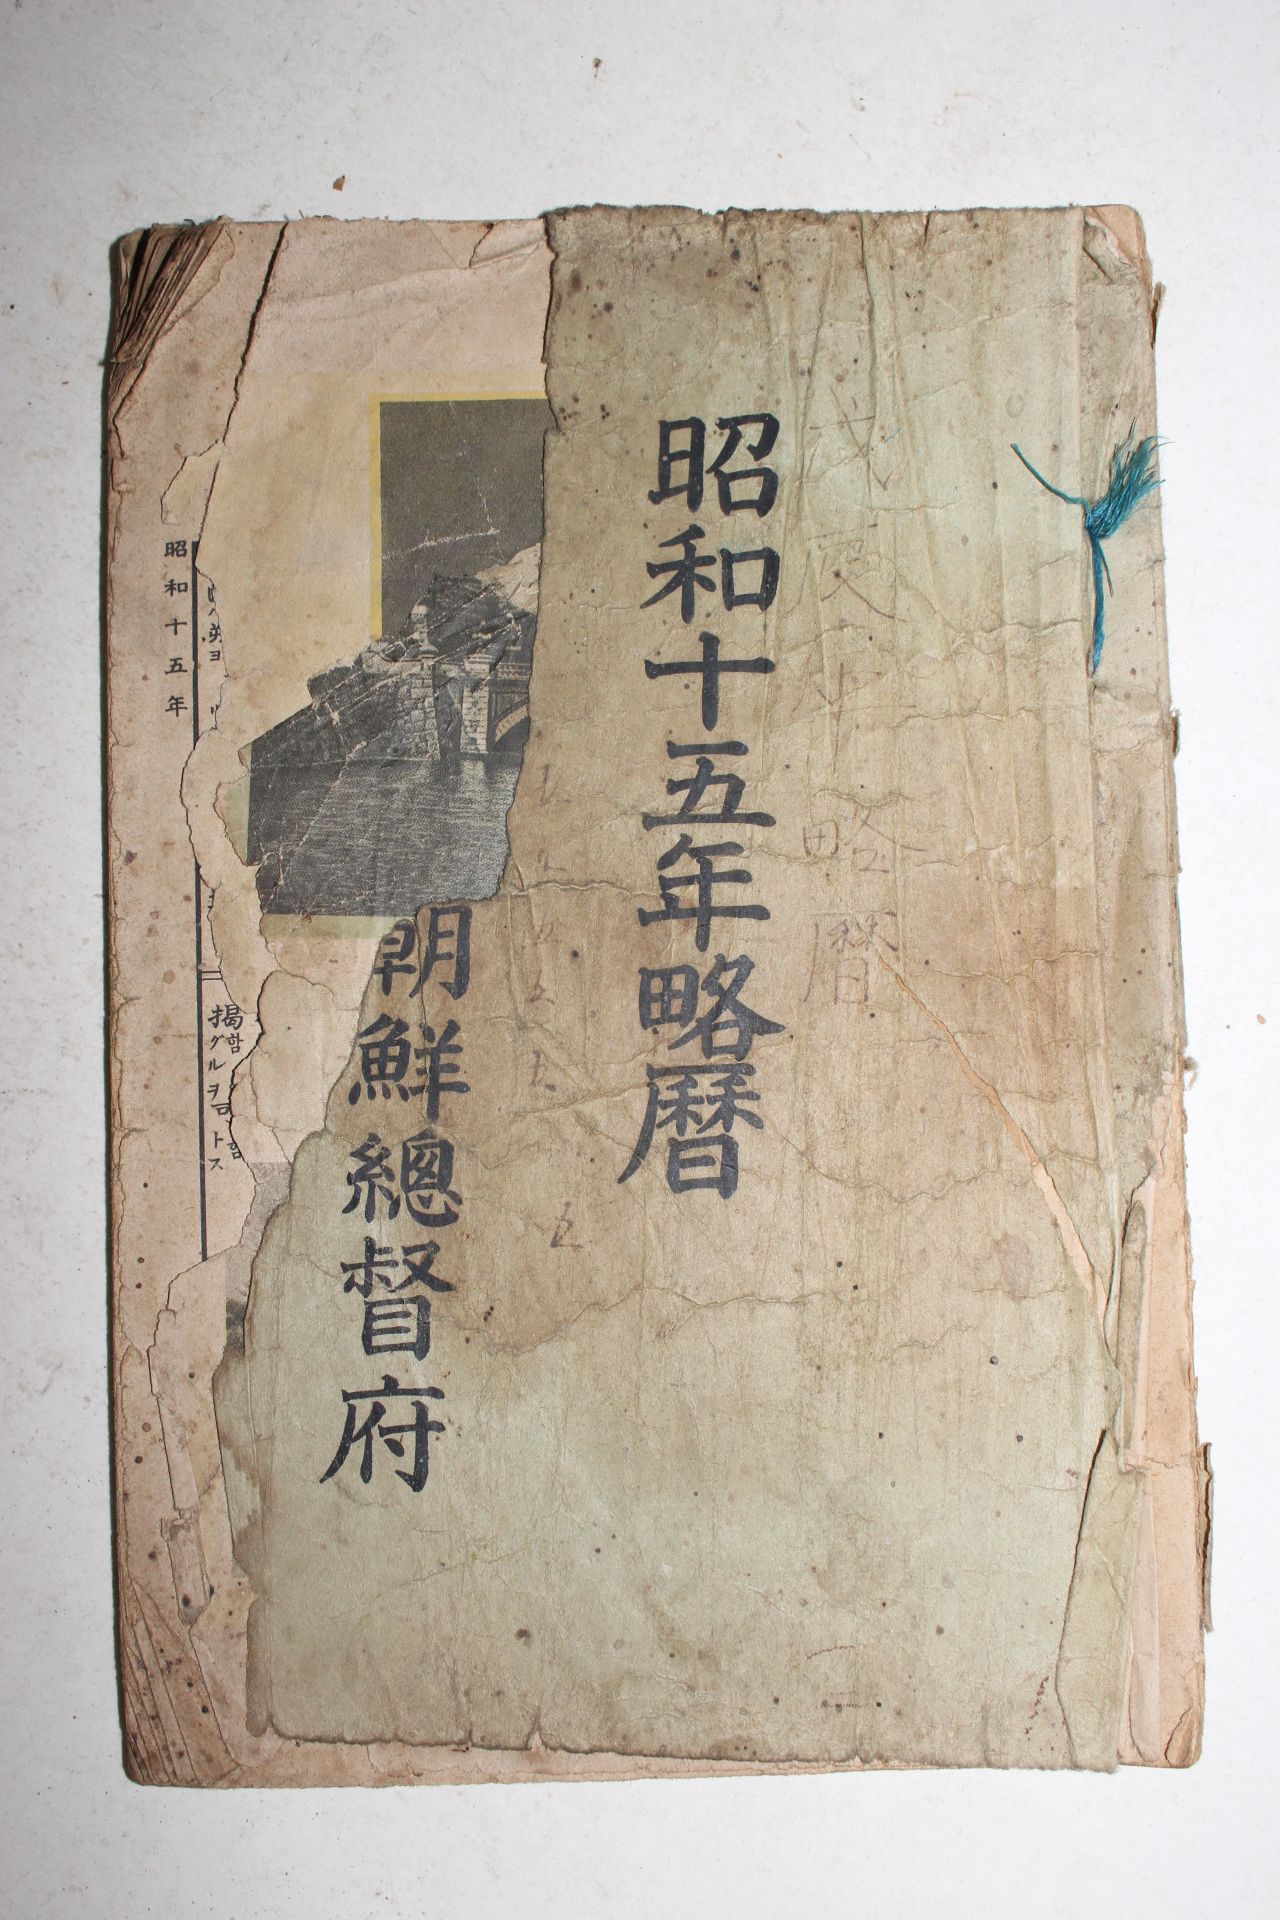 昭和十五年略暦
朝鮮總督府
略暦
昭和十五年
揭グルヲトス